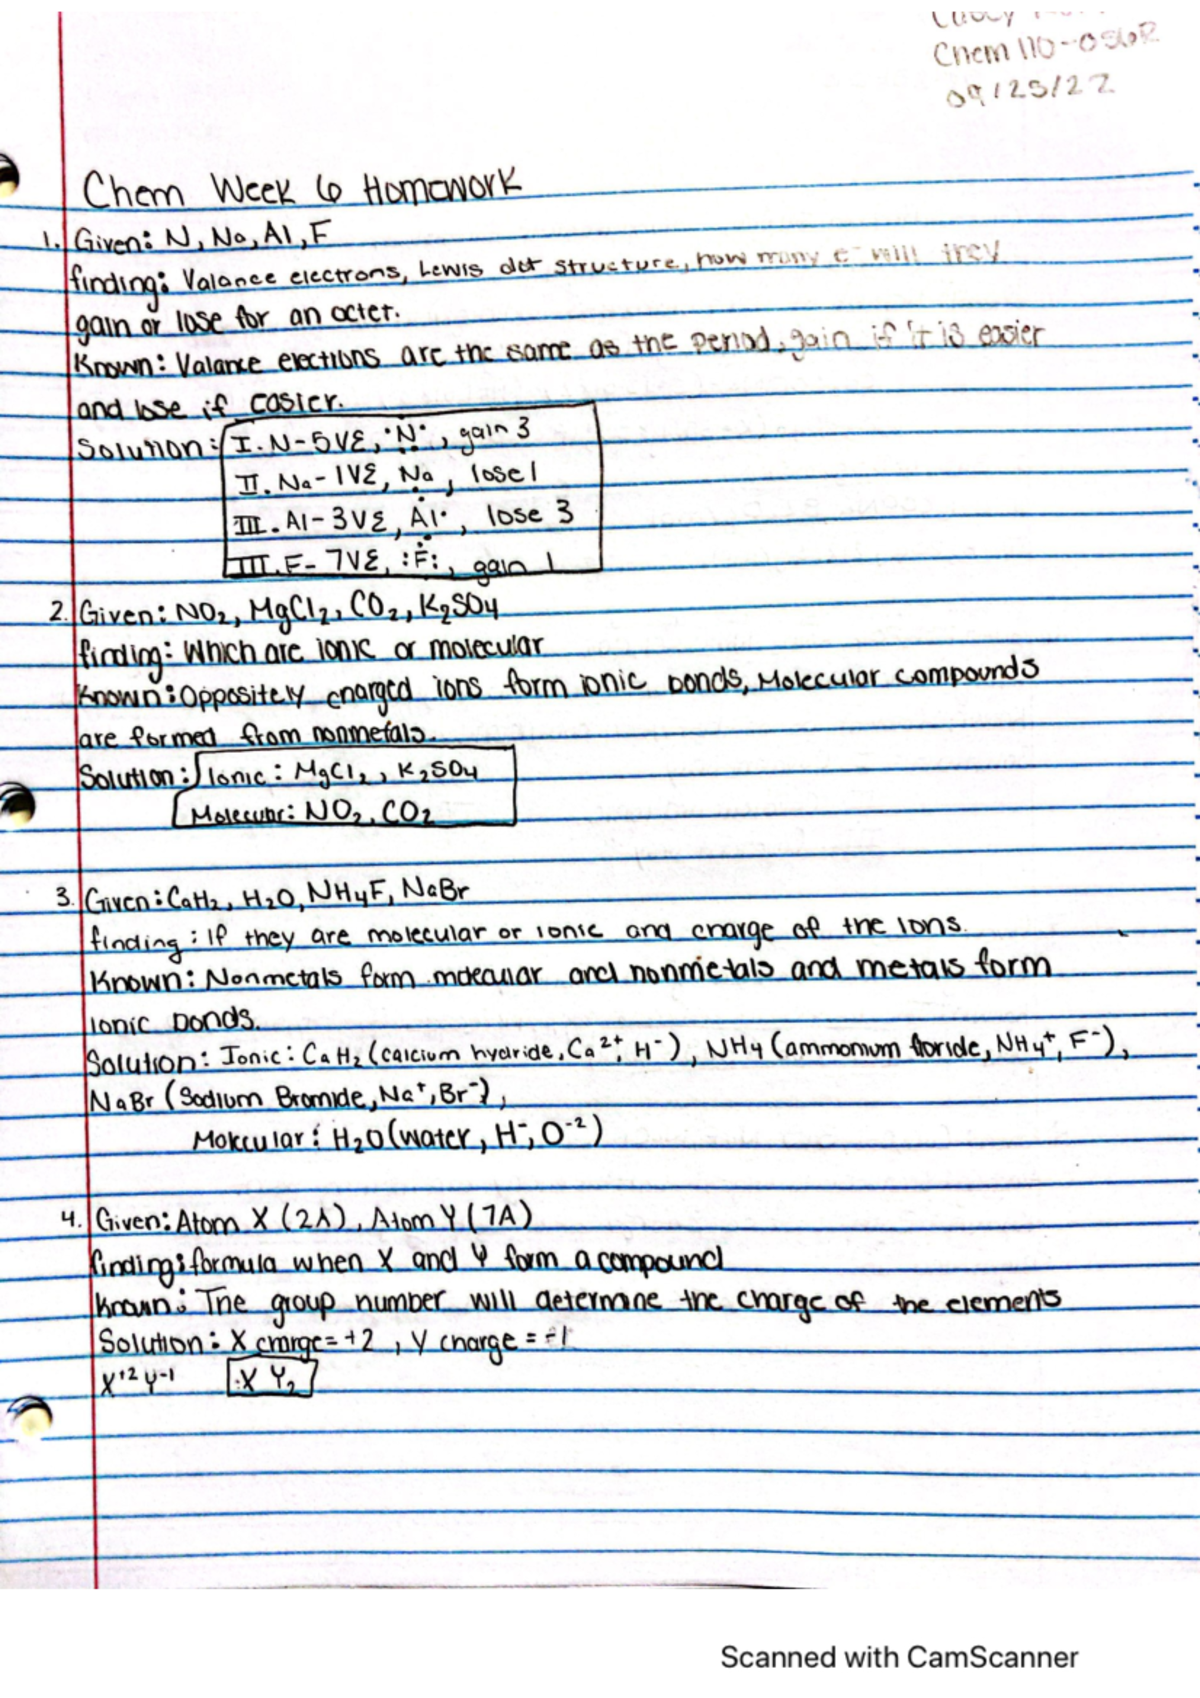 Chem 110-056R
09/23/22
Chem Week 6 Homework
1. Given: N, Na, Al, F
finding: Valance electrons, Lewis dot structure, how many e⁻ will they
gain or lose for an octet.
Known: Valance elections are the same as the period, gain if it is easier
and lose if easier.
Solution: I. N-5VE, ·N·, gain 3
II. Na-1VE, Na, lose 1
III. Al-3VE, Al·, lose 3
III. F-7VE, :F:, gain 1
2. Given: NO₂, MgCl₂, CO₂, K₂SO₄
finding: Which are ionic or molecular
Known: Oppositely charged ions form ionic bonds, Molecular compounds
are formed from nonmetals.
Solution: Ionic: MgCl₂, K₂SO₄
Molecular: NO₂, CO₂
3. Given: CaH₂, H₂O, NH₄F, NaBr
finding: If they are molecular or ionic and charge of the ions.
Known: Nonmetals form molecular and nonmetals and metals form
ionic bonds.
Solution: Ionic: CaH₂ (calcium hydride, Ca²⁺, H⁻), NH₄ (ammonium floride, NH₄⁺, F⁻),
NaBr (Sodium Bromide, Na⁺, Br⁻),
Molecular: H₂O (water, H⁻, O⁻²)
4. Given: Atom X (2A), Atom Y (7A)
finding: formula when X and Y form a compound
Known: The group number will determine the charge of the elements
Solution: X charge = +2, Y charge = -1
X⁺² Y⁻¹ XY₂
Scanned with CamScanner